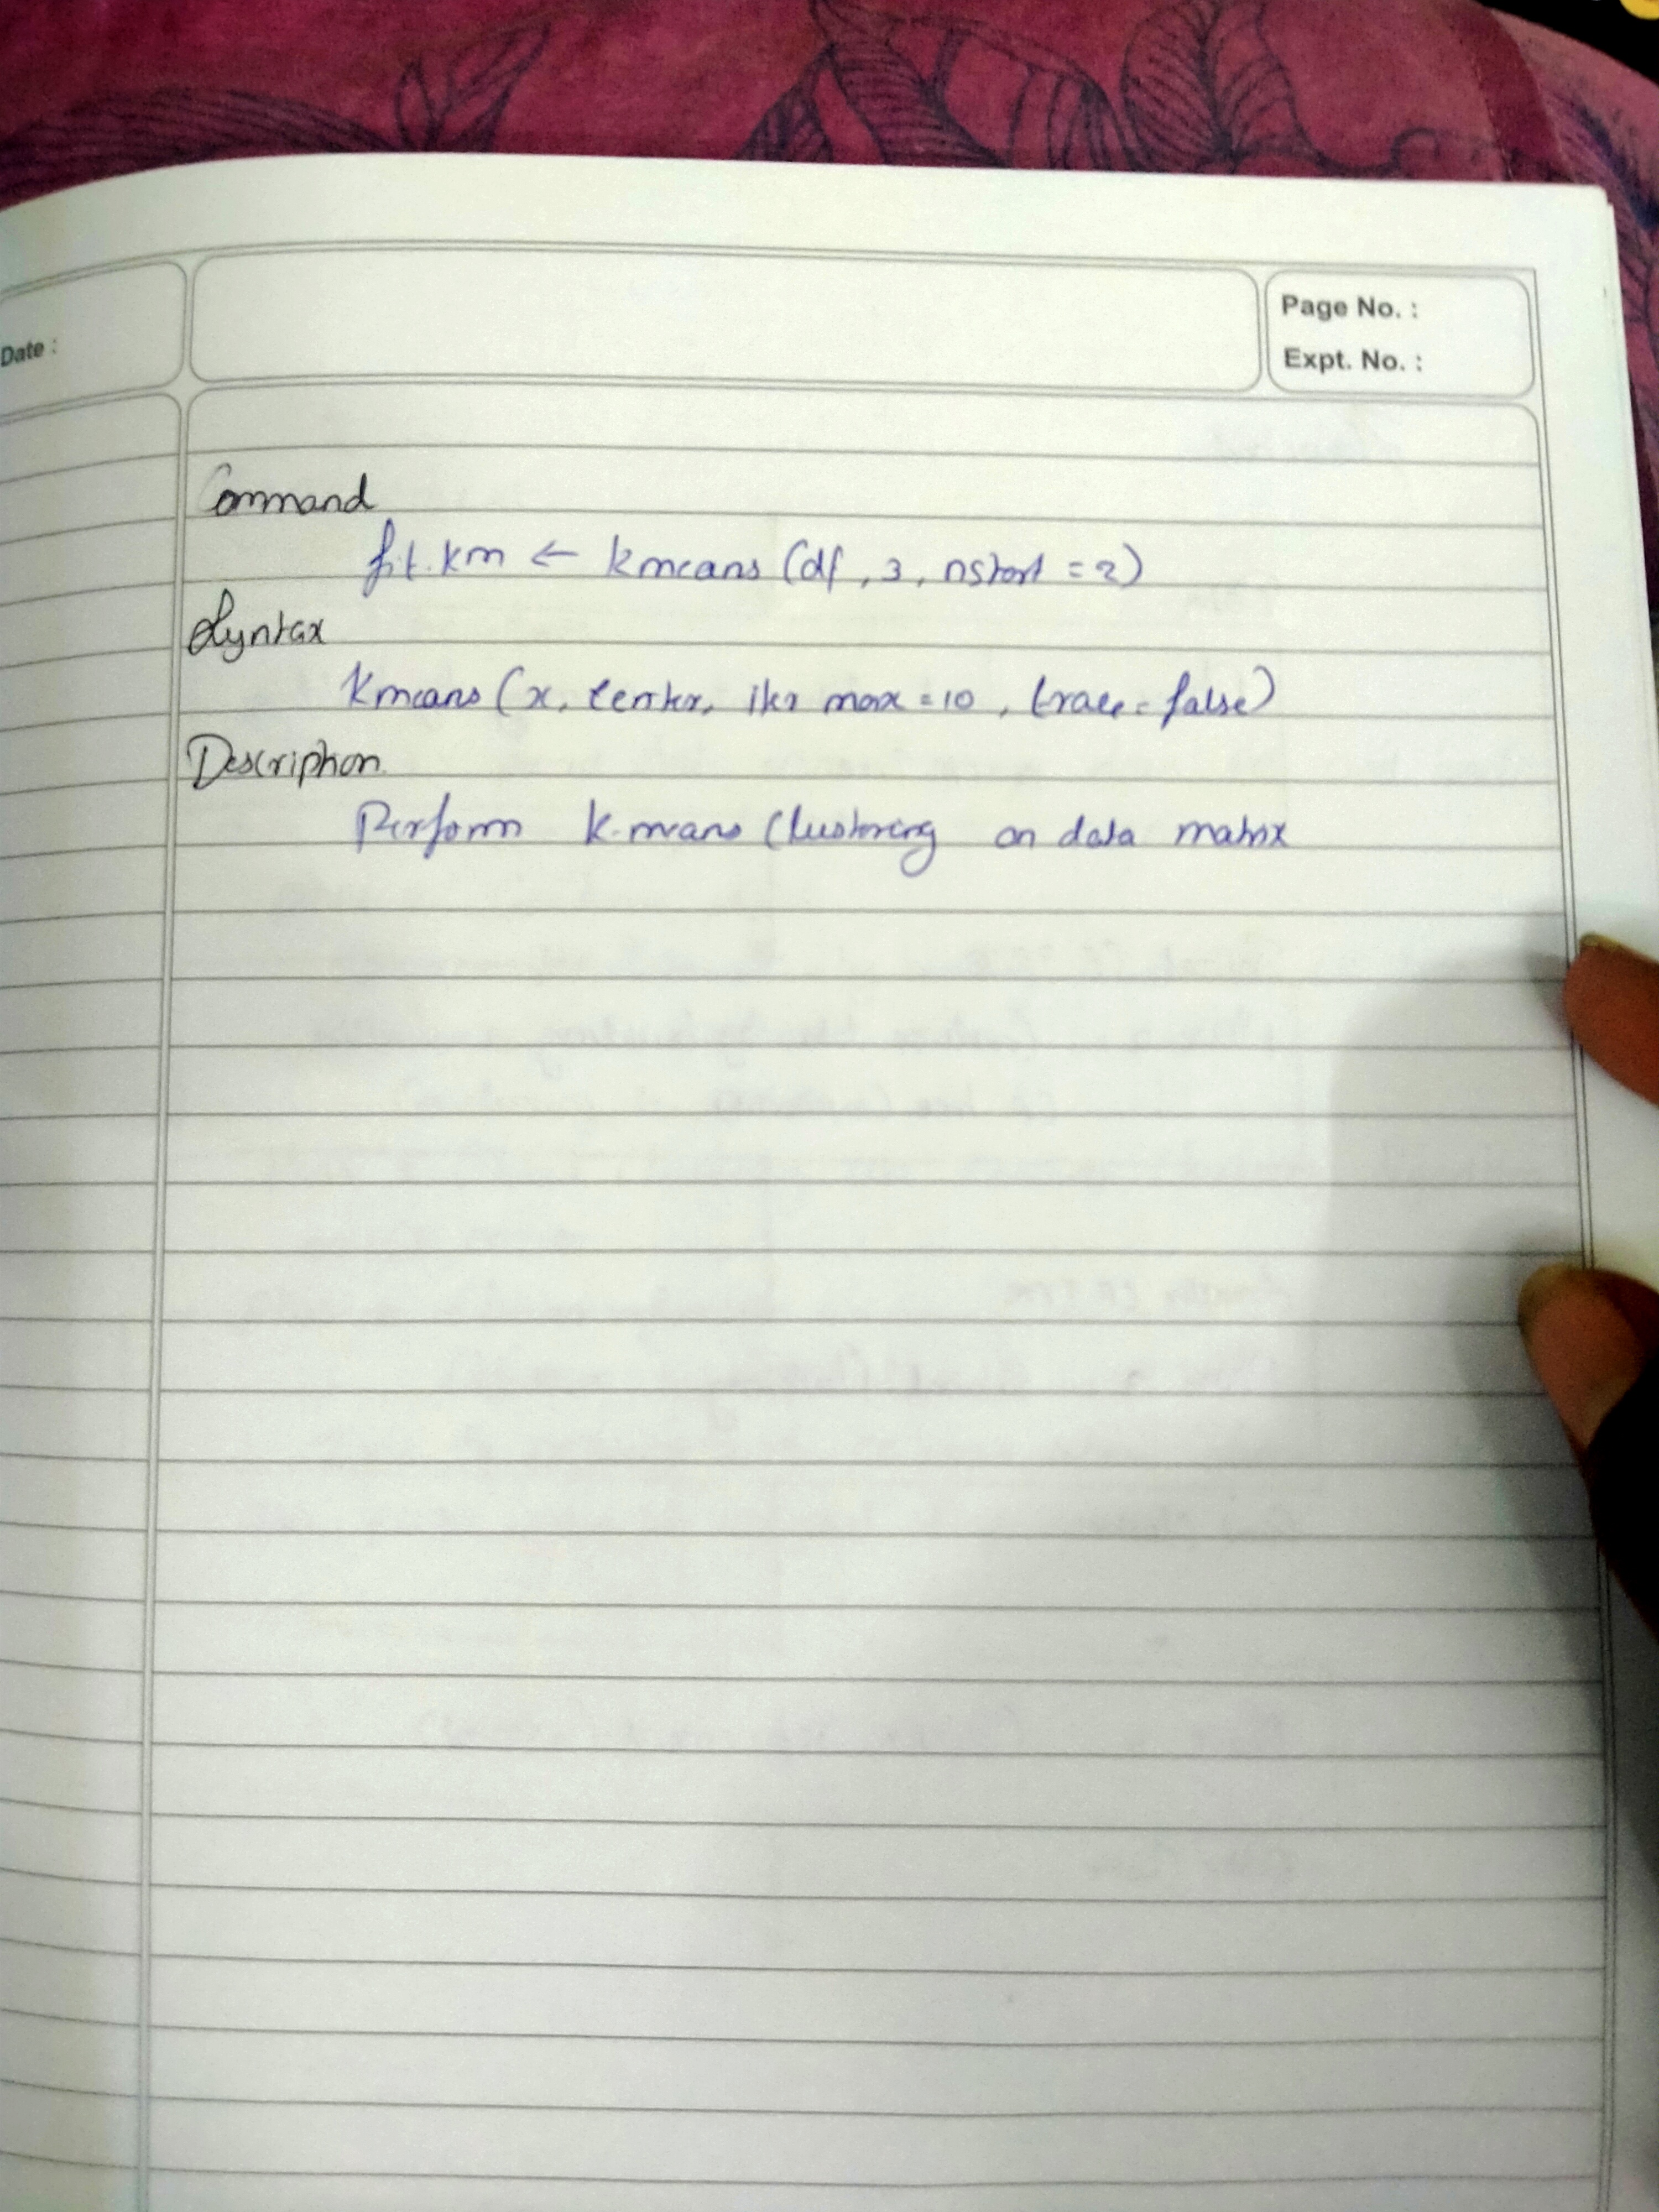 Date :
Page No. :
Expt. No. :
Command
fit.km ← kmeans (df, 3, nstart = 2)
Syntax
kmeans (x, center, iter max = 10, trace = false)
Description
Perform k-means Clustering on data matrix